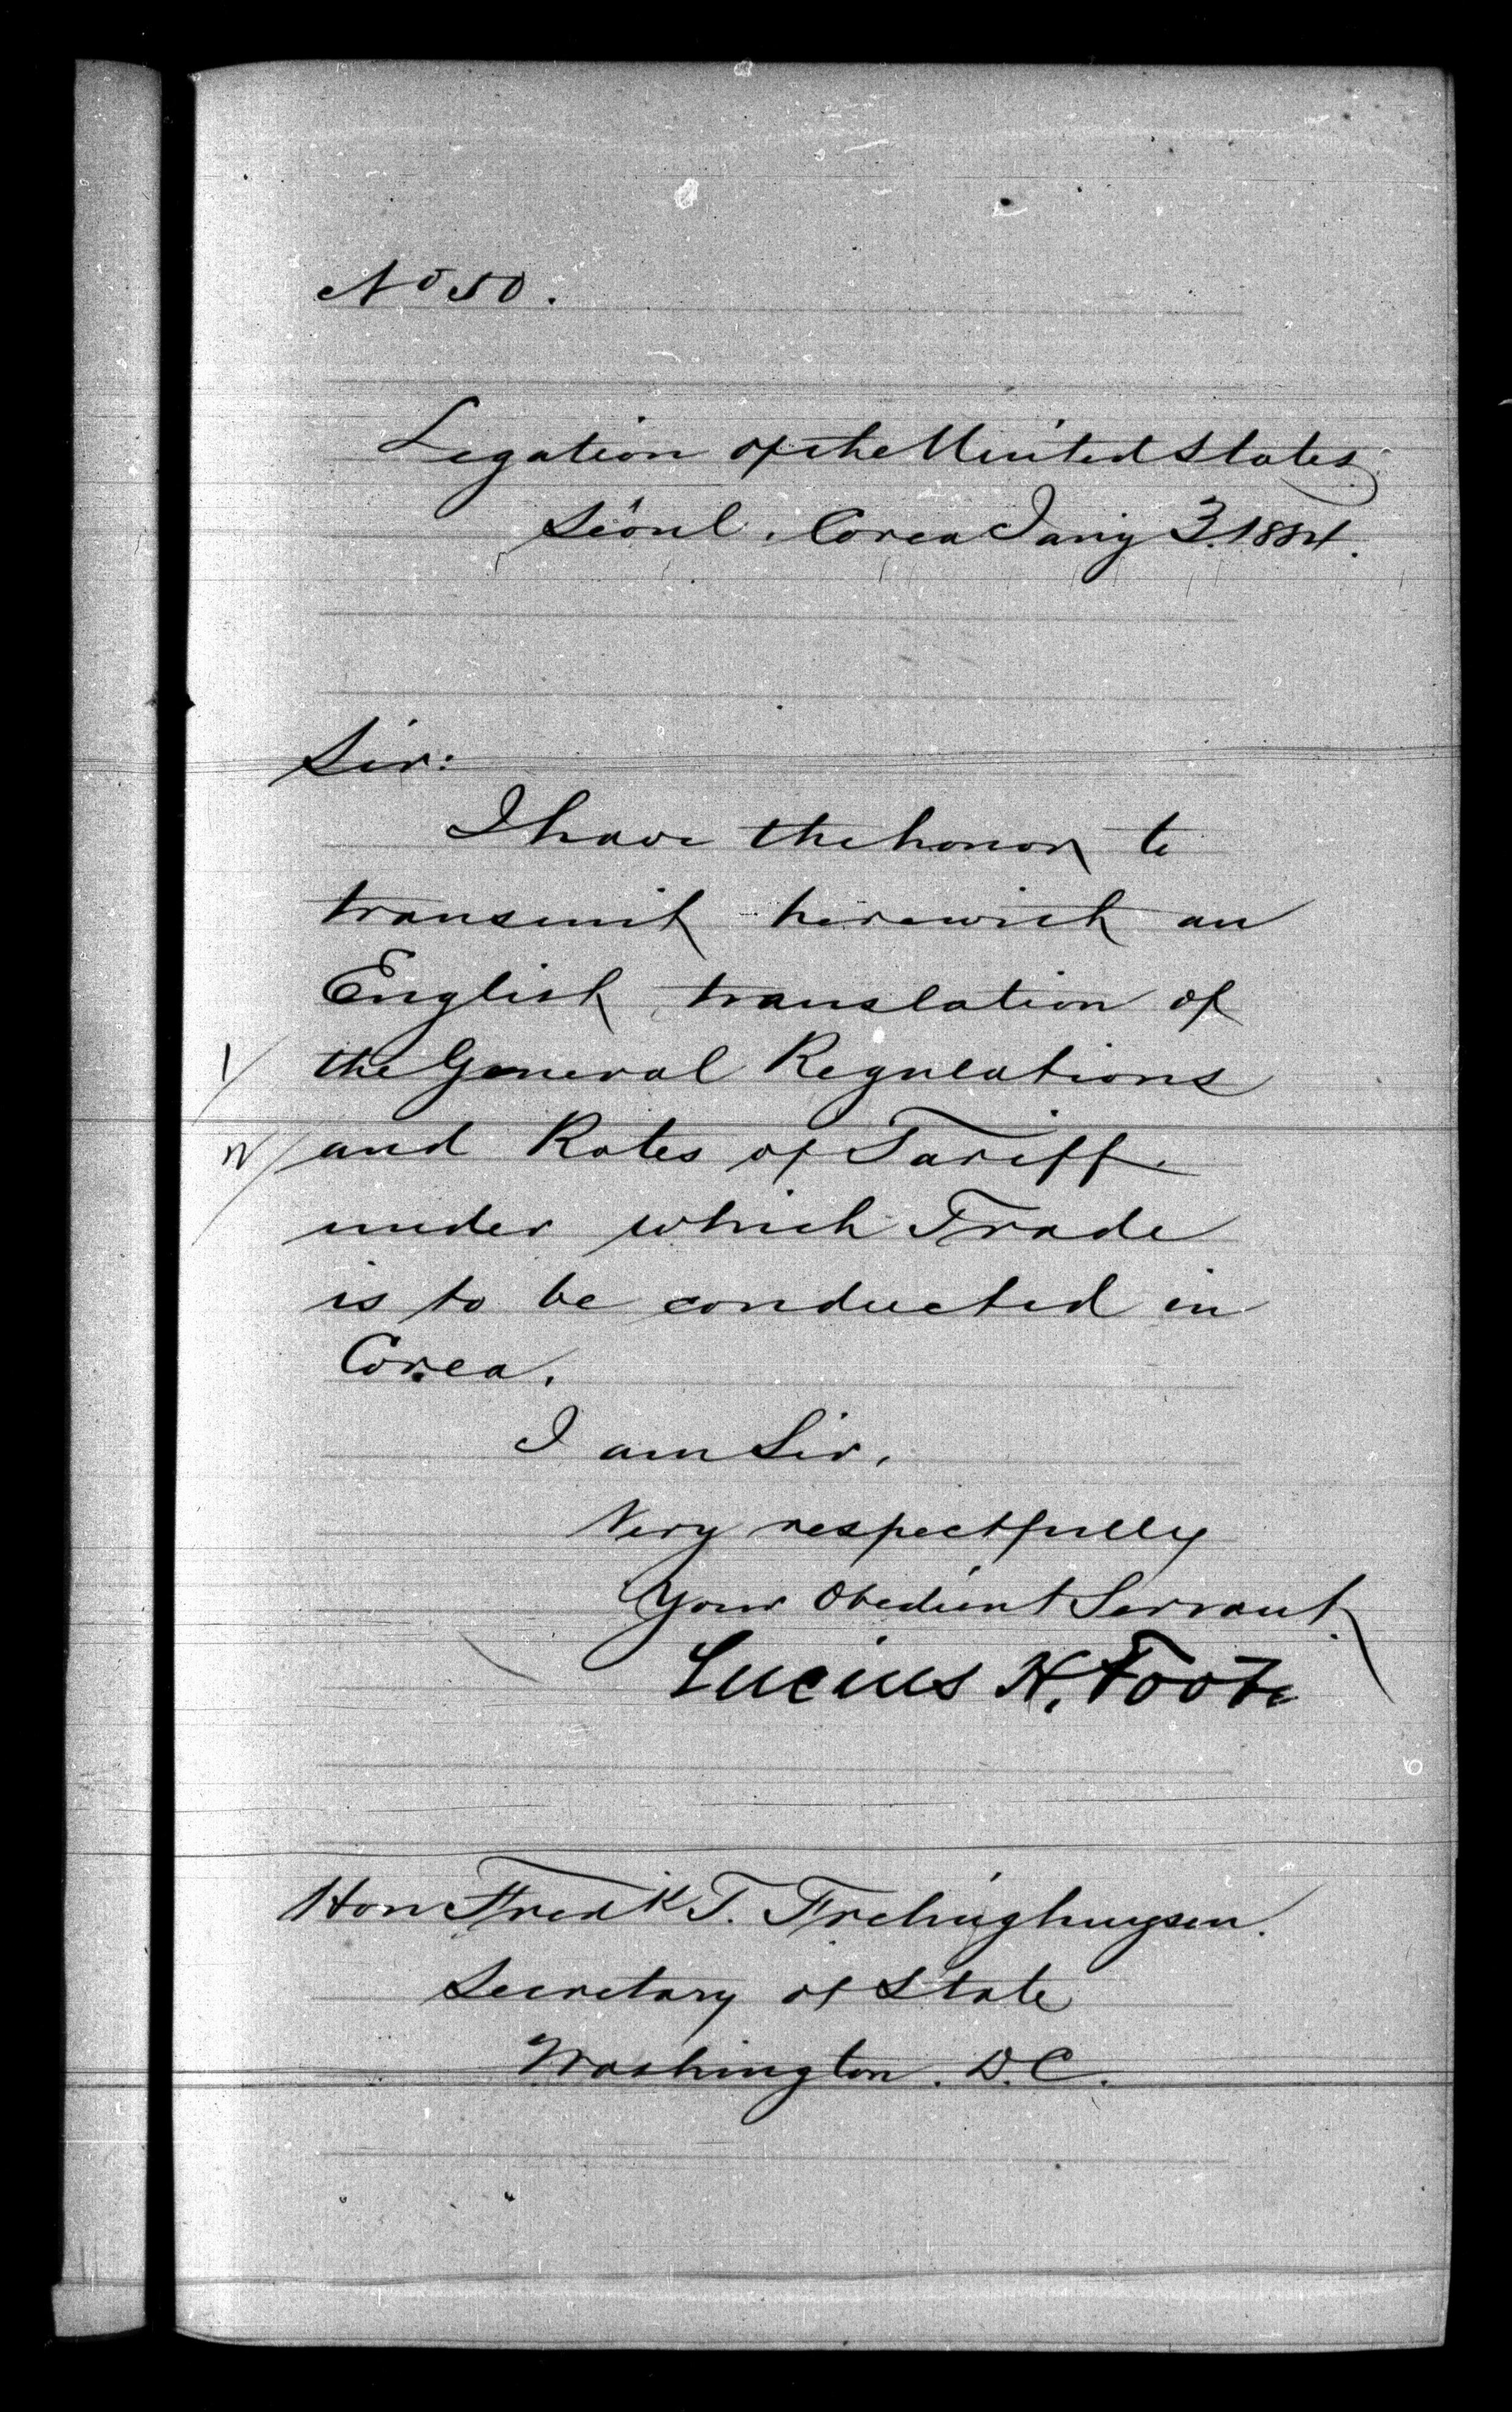 No 50.
Legation of the United States
Séoul, Corea Jany 3. 1884.
Sir:
I have the honor to
transmit herewith an
English translation of
1/ the General Regulations
2/ and Rates of Tariff
under which Trade
is to be conducted in
Corea.
I am Sir,
Very respectfully
Your Obedient Servant.
Lucius H. Foote
Hon Fredk T. Frelinghuysen.
Secretary of State
Washington. D.C.